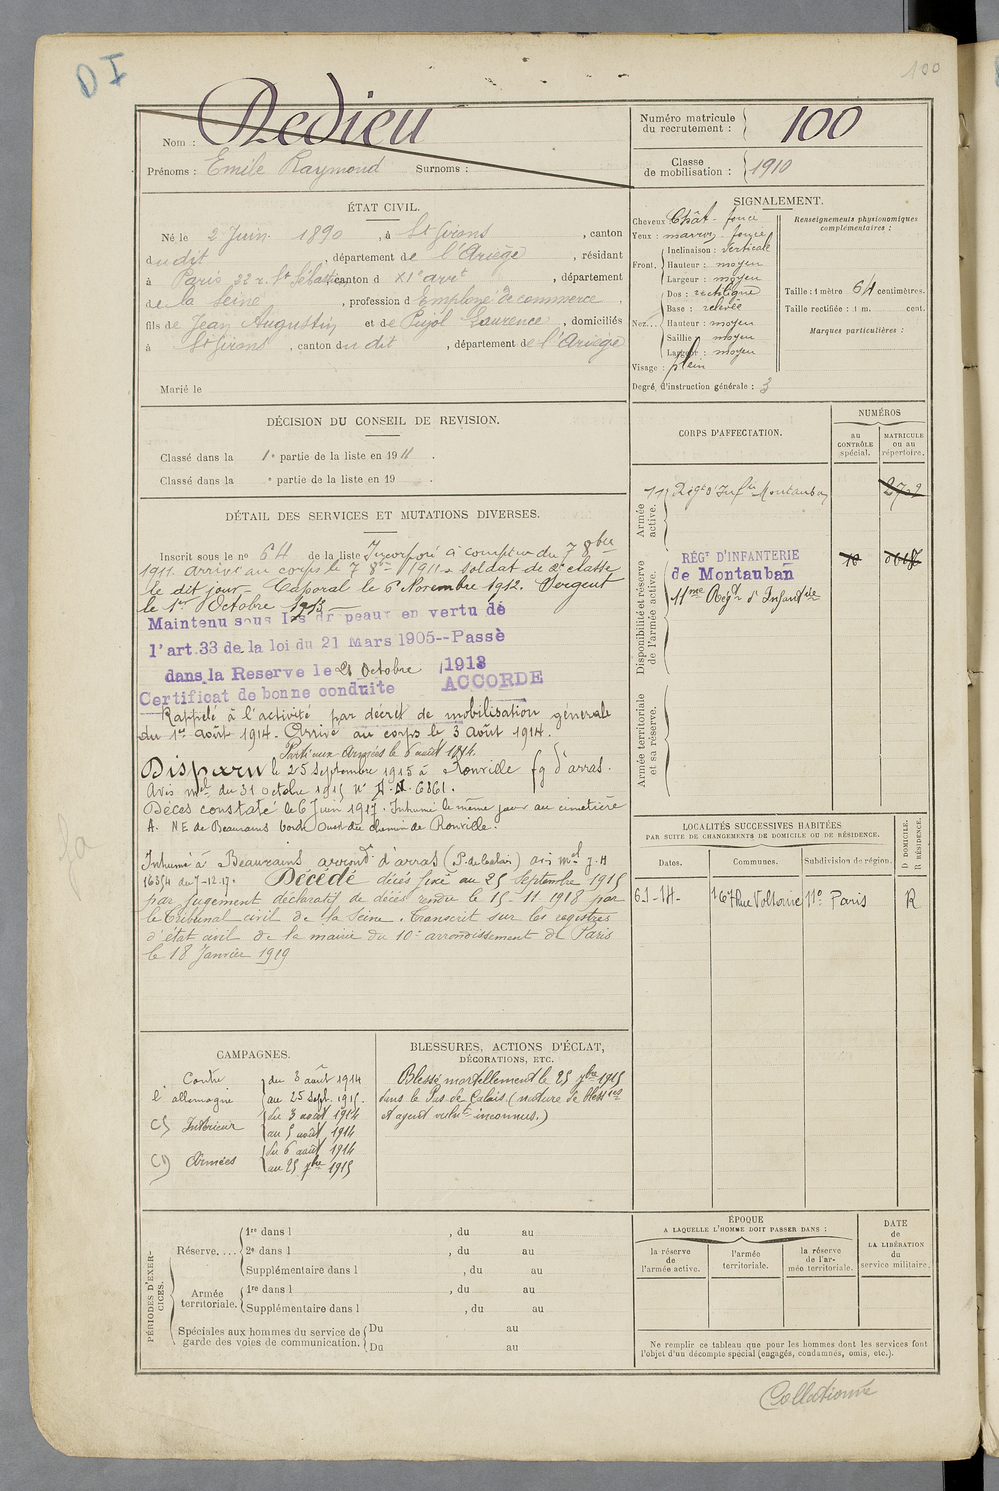 DI
100
Nom : Redieu
Prénoms : Emile Raymond Surnoms :
Numéro matricule du recrutement : 100
Classe de mobilisation : 1910
ÉTAT CIVIL.
Né le 2 Juin 1890, à St Girons, canton
du dit, département de l'Ariège, résidant
à Paris 22 r. St Sébastien canton d XIe arrt, département
de la Seine, profession d'Employé de commerce
fils de Jean Augustin et de Pujol Laurence, domiciliés
à St Girons, canton du dit, département de l'Ariège
Marié le
SIGNALEMENT.
Cheveux : Chât. foncé
Yeux : marron foncé
Front. Inclinaison : verticale
Hauteur : moyen
Largeur : moyen
Nez... Dos : rectiligne
Base : relevée
Hauteur : moyen
Saillie : moyen
Largeur : moyen
Visage : plein
Degré d'instruction générale : 3
Renseignements physionomiques complémentaires :
Taille : 1 mètre 64 centimètres.
Taille rectifiée : 1 m. cent.
Marques particulières :
DÉCISION DU CONSEIL DE REVISION.
Classé dans la 1e partie de la liste en 1911.
Classé dans la e partie de la liste en 19 .
DÉTAIL DES SERVICES ET MUTATIONS DIVERSES.
Inscrit sous le no 64 de la liste Incorporé à compter du 7 8bre
1911. Arrivé au corps le 7 8bre 1911. Soldat de 2e classe
le dit jour. Caporal le 6 Novembre 1912. Sergent
le 1er Octobre 1913
Maintenu sous les drapeaux en vertu de
l'art.33 de la loi du 21 Mars 1905--Passé
dans la Reserve le Octobre 1913
Certificat de bonne conduite ACCORDE
Rappelé à l'activité par décret de mobilisation générale
du 1er août 1914. Arrivé au corps le 3 août 1914.
Parti aux Armées le 6 août 1914.
Disparu le 25 Septembre 1915 à Ronville fg d'arras.
Avis mel du 31 octobre 1915 No A.A. 6861.
Décès constaté le 6 Juin 1917. Inhumé le même jour au cimetière
A. NE de Beaurains bords Ouest du chemin de Ronville.
Inhumé à Beaurains arrondt d'arras (P. de Calais) avis mel J.H
16354 du 7-12-17. Décédé décès fixé au 25 Septembre 1915
par Jugement déclaratif de décès rendu le 15-11-1918 par
le Tribunal civil de la Seine. Transcrit sur les registres
d'état civil de la mairie du 10e arrondissement de Paris
le 18 Janvier 1919
CORPS D'AFFECTATION.
NUMÉROS
au CONTRÔLE spécial.
MATRICULE ou au répertoire.
Armée active.
11 Régt d'Infie Montauban
Disponibilité et réserve de l'armée active.
RÉGT D'INFANTERIE
de Montauban
11me Régt d'Infanterie
Armée territoriale et sa réserve.
LOCALITÉS SUCCESSIVES HABITÉES
PAR SUITE DE CHANGEMENTS DE DOMICILE OU DE RÉSIDENCE.
Dates. Communes. Subdivision de région. D DOMICILE. R RÉSIDENCE.
167 Rue Voltaire 11e Paris R
CAMPAGNES.
Contre l'allemagne du 3 août 1914
au 25 Sept. 1915.
CS Intérieur du 3 août 1914
au 5 août 1914
CD Armées du 6 août 1914
au 25 7bre 1915
BLESSURES, ACTIONS D'ÉCLAT,
DÉCORATIONS, ETC.
Blessé mortellement le 25 7bre 1915
dans le Pas de Calais. (nature de bless res
et agent vulnt inconnus.)
PÉRIODES D'EXERCICES.
Réserve.... 1re dans l , du au
2e dans l , du au
Supplémentaire dans l , du au
Armée territoriale. 1re dans l , du au
Supplémentaire dans l , du au
Spéciales aux hommes du service de garde des voies de communication. Du au
Du au
ÉPOQUE
A LAQUELLE L'HOMME DOIT PASSER DANS :
la réserve de l'armée active.
l'armée territoriale.
la réserve de l'armée territoriale.
DATE DE LA LIBÉRATION du service militaire.
Ne remplir ce tableau que pour les hommes dont les services font
l'objet d'un décompte spécial (engagés, condamnés, omis, etc.).
Collationné